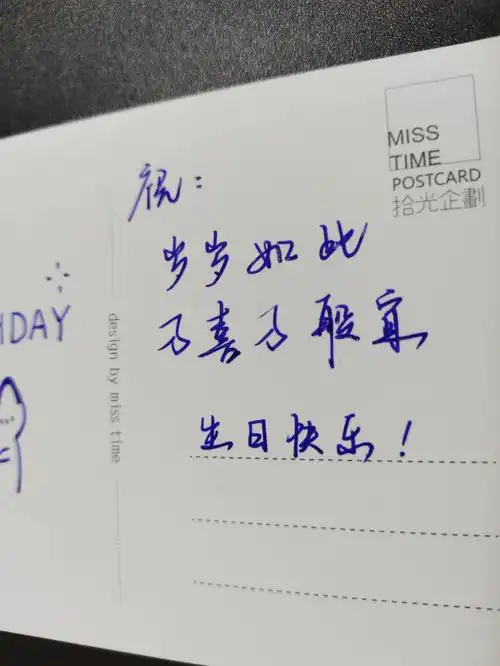 MISS
TIME
POSTCARD
拾光企劃
祝：
岁岁如此
万喜万般宜
生日快乐！
HDAY
design by miss time